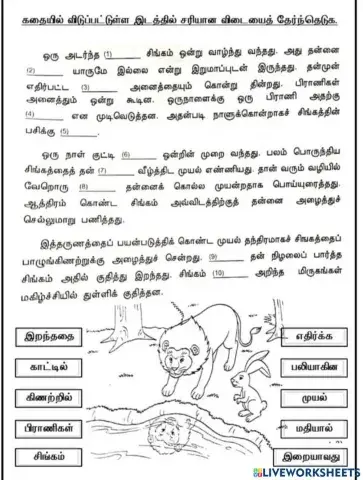 கதையில் விடுப்பட்டுள்ள இடத்தில் சரியான விடையைத் தேர்ந்தெடுக.
ஒரு அடர்ந்த (1)______ சிங்கம் ஒன்று வாழ்ந்து வந்தது. அது தன்னை
(2)______ யாருமே இல்லை என்று இறுமாப்புடன் இருந்தது. தன்முன்
எதிர்பட்ட (3)______ அனைத்தையும் கொன்று தின்றது. பிராணிகள்
அனைத்தும் ஒன்று கூடின. ஒருநாளைக்கு ஒரு பிராணி அதற்கு
(4)______ என முடிவெடுத்தன. அதன்படி நாளுக்கொன்றாகச் சிங்கத்தின்
பசிக்கு (5)______.
ஒரு நாள் குட்டி (6)______ ஒன்றின் முறை வந்தது. பலம் பொருந்திய
சிங்கத்தைத் தன் (7)______ வீழ்த்திட முயல் எண்ணியது. தான் வரும் வழியில்
வேறொரு (8)______ தன்னைக் கொல்ல முயன்றதாக பொய்யுரைத்தது.
ஆத்திரம் கொண்ட சிங்கம் அவ்விடத்திற்குத் தன்னை அழைத்துச்
செல்லுமாறு பணித்தது.
இத்தருணத்தைப் பயன்படுத்திக் கொண்ட முயல் தந்திரமாகச் சிங்கத்தைப்
பாழுங்கிணற்றுக்கு அழைத்துச் சென்றது. (9)______ தன் நிழலைப் பார்த்த
சிங்கம் அதில் குதித்து இறந்தது. சிங்கம் (10)______ அறிந்த மிருகங்கள்
மகிழ்ச்சியில் துள்ளிக் குதித்தன.
இறந்ததை
எதிர்க்க
காட்டில்
பலியாகின
கிணற்றில்
முயல்
பிராணிகள்
மதியால்
சிங்கம்
இறையாவது
LIVEWORKSHEETS